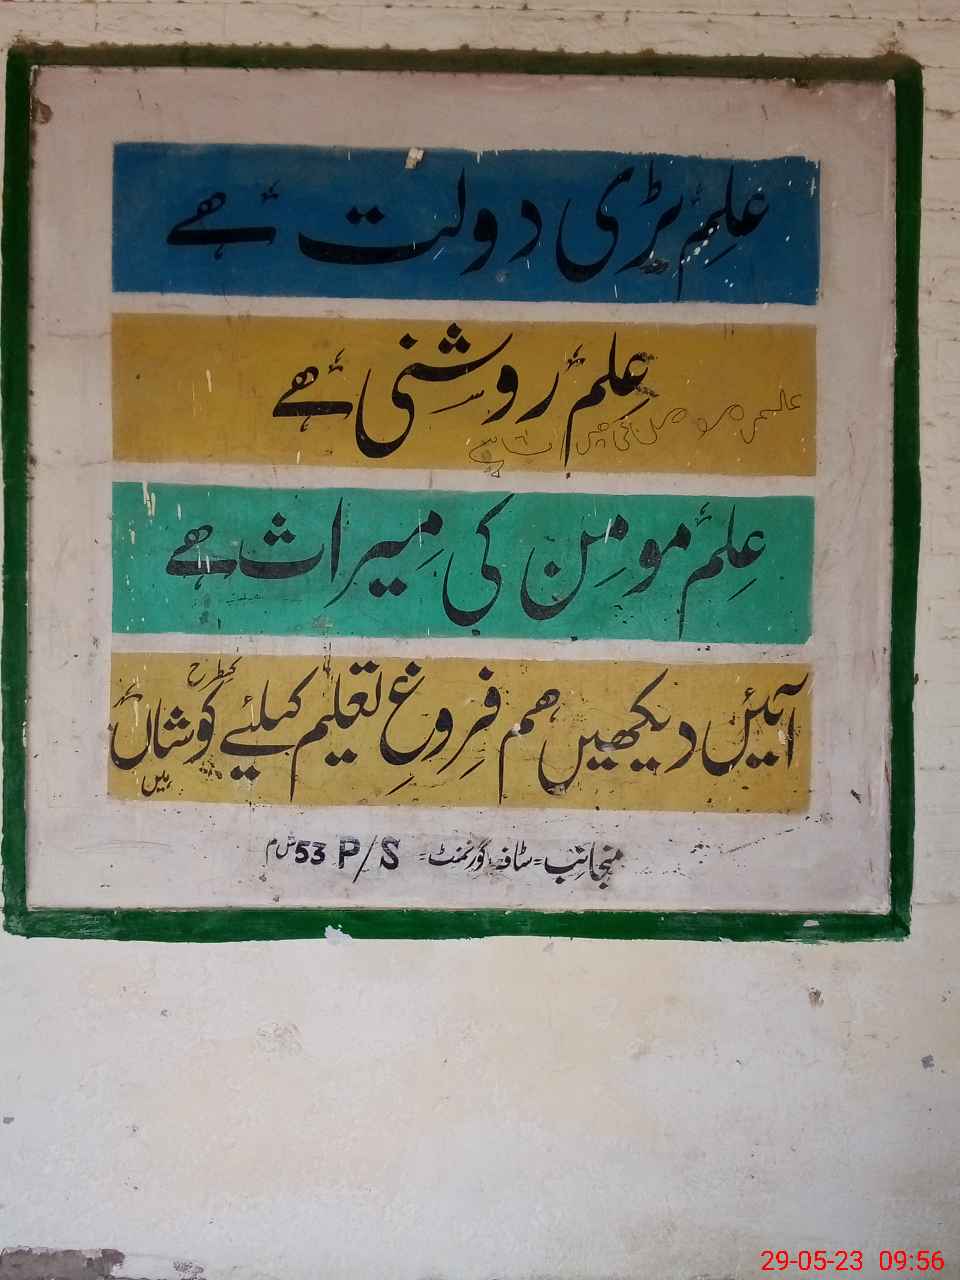 علم بڑی دولت ہے
علم روشنی ہے
علم مومن کی میراث ہے
علم مومن کی میراث ہے
آئیں دیکھیں ہم فروغِ تعلیم کیلئے کسطرح کوشاں ہیں
منجانب = سٹاف گورنمنٹ = P/S 53 م
29-05-23 09:56